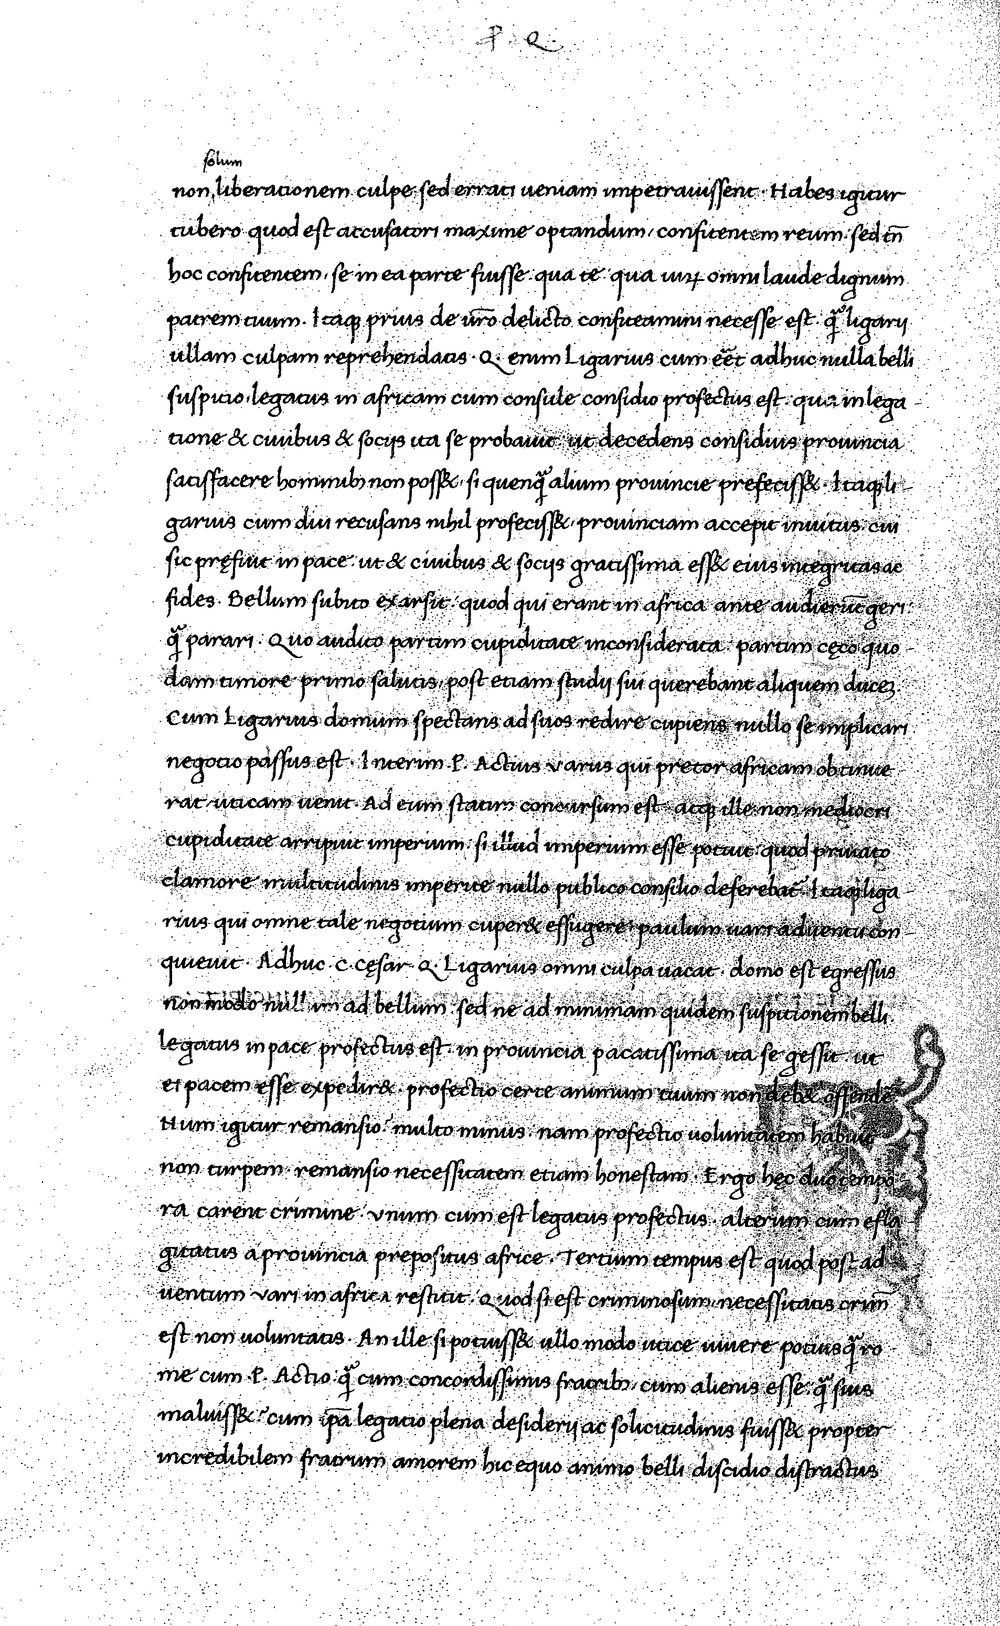 P. Q.
solum
non liberationem culpe sed errati ueniam impetrauissent. Habes igitur
tubero quod est accusatori maxime optandum, confitentem reum. sed tn̄
hoc confitentem, se in ea parte fuisse. qua te. qua uirꝝ omni laude dignum
patrem tuum. Itaqꝫ prius de ur̄o delicto confiteamini necesse est. qᷓ ligarij
ullam culpam reprehendatis. Q. enim Ligarius cum eēt adhuc nulla belli
suspicio, legatus in africam cum consule considio profectus est. qua in lega-
tione & ciuibus & socijs ita se probauit. ut decedens considius prouincia
satisfacere hominibꝫ non poss&, si quenqᷓ alium prouincie prefeciss&. Itaqꝫ li-
garius cum diu recusans nihil profeciss&, prouinciam accepit inuitus. cui
sic pręfuit in pace. ut & ciuibus & socijs gratissima ess& eius integritas ac
fides. Bellum subito exarsit. quod qui erant in africa ante audierūt geri.
qᷓ parari. Quo audito partim cupiditate inconsiderata. partim cęco quo-
dam timore primo salutis, post etiam studij sui querebant aliquem duceꝫ.
Cum Ligarius domum spectans ad suos redire cupiens nullo se implicari
negocio passus est. Interim P. Actius varus qui pretor africam obtinue-
rat uticam uenit. Ad eum statim concursum est. atqꝫ ille non mediocri
cupiditate arripuit imperium. si illud imperium esse potuit. quod priuato
clamore multitudinis imperite nullo publico consilio deferebat̄. Itaqꝫ liga-
rius qui omne tale negotium cuper& effugere, paulum uari aduentu con-
quieuit. Adhuc. c. cęsar. Q. Ligarius omni culpa uacat. domo est egressus
non modo null um ad bellum. sed ne ad minimam quidem suspitionem belli.
legatus in pace profectus est. in prouincia pacatissima ita se gessit. ut
ei pacem esse expedir&. profectio certe animum tuum non deb& offende-
Num igitur remansio. multo minus. nam profectio uoluntatem habuit
non turpem. remansio necessitatem etiam honestam. Ergo hęc duo tempo-
ra carent crimine. vnum cum est legatus profectus. alterum cum efla-
gitatus a prouincia prepositus africe. Tertium tempus est quod post ad-
uentum vari in africa restitit. Quod si est criminosum, necessitatis crim̄
est non uoluntatis. An ille si potuiss& ullo modo utice uiuere potius qᷓ ro-
me cum P. Actio. qᷓ cum concordissimis fratribꝫ, cum alienis esse. qᷓ suis
maluiss&. cum ip̄a legatio plena desiderij ac solicitudinis fuiss& propter
incredibilem fratrum amorem hic equo animo belli discidio distractus